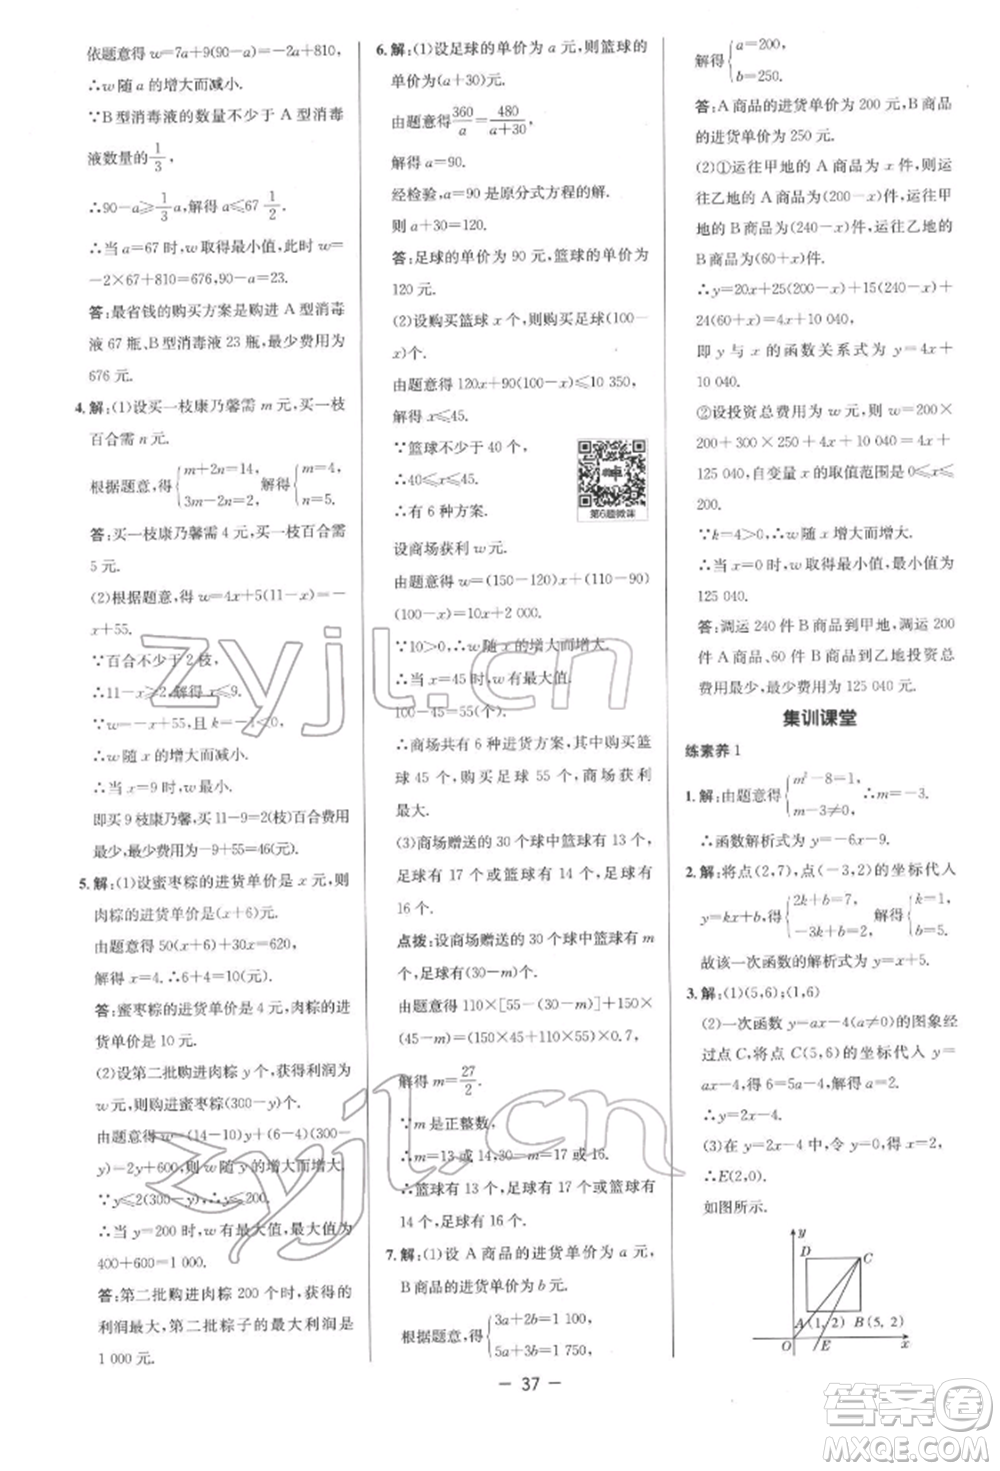 依题意得 w=7a+9(90-a)=-2a+810,
∴w 随 a 的增大而减小.
∵B 型消毒液的数量不少于 A 型消毒
液数量的 1/3,
∴90-a≥1/3 a,解得 a≤67 1/2.
∴当 a=67 时,w 取得最小值,此时 w=
-2×67+810=676,90-a=23.
答:最省钱的购买方案是购进 A 型消毒
液 67 瓶、B 型消毒液 23 瓶,最少费用为
676 元.
4.解:(1)设买一枝康乃馨需 m 元,买一枝
百合需 n 元.
根据题意,得{m+2n=14, 3m-2n=2, 解得{m=4, n=5.
答:买一枝康乃馨需 4 元,买一枝百合需
5 元.
(2)根据题意,得 w=4x+5(11-x)=
-x+55.
∵百合不少于 2 枝,
∴11-x≥2,解得 x≤9.
∵w=-x+55,-1<0,
∴w 随 x 的增大而减小.
∴当 x=9 时,w 最小.
即买 9 枝康乃馨,买 11-9=2(枝)百合费用
最少,最少费用为-9+55=46(元).
5.解:(1)设蜜枣粽的进货单价是 x 元,则
肉粽的进货单价是(x+6)元.
由题意得 50(x+6)+30x=620,
解得 x=4.∴6+4=10(元).
答:蜜枣粽的进货单价是 4 元,肉粽的进
货单价是 10 元.
(2)设第二批购进肉粽 y 个,获得利润为
w 元,则购进蜜枣粽(300-y)个.
由题意得 w=(14-10)y+(6-4)(300-
y)=2y+600,则 w 随 y 的增大而增大.
∵y≤2(300-y),∴y≤200.
∴当 y=200 时,w 有最大值,最大值为
400+600=1 000.
答:第二批购进肉粽 200 个时,获得的
利润最大,第二批粽子的最大利润是
1 000 元.
6.解:(1)设足球的单价为 a 元,则篮球的
单价为(a+30)元.
由题意得 360/a=480/(a+30),
解得 a=90.
经检验,a=90 是原分式方程的解.
则 a+30=120.
答:足球的单价为 90 元,篮球的单价为
120 元.
(2)设购买篮球 x 个,则购买足球(100-
x)个.
由题意得 120x+90(100-x)≤10 350,
解得 x≤45.
∵篮球不少于 40 个,
∴40≤x≤45.
∴有 6 种方案.
第6题微课
设商场获利 w元.
由题意得 w=(150-120)x+(110-90)
(100-x)=10x+2 000,
∵10>0,∴w随 x 的增大而增大.
∴当 x=45 时,w 有最大值.
100-45=55(个).
∴商场共有 6 种进货方案,其中购买篮
球 45 个,购买足球 55 个,商场获利
最大.
(3)商场赠送的 30 个球中篮球有 13 个,
足球有 17 个或篮球有 14 个,足球有
16 个.
点拨:设商场赠送的 30 个球中篮球有 m
个,足球有(30-m)个.
由题意得 110×[55-(30-m)]+150×
(45-m)=(150×45+110×55)×0.7,
解得 m=27/2.
∵m 是正整数,
∴m=13 或 14,30-m=17 或 16.
∴篮球有 13 个,足球有 17 个或篮球有
14 个,足球有 16 个.
7.解:(1)设 A 商品的进货单价为 a 元,
B商品的进货单价为 b 元.
根据题意,得{3a+2b=1 100, 5a+3b=1 750,
解得{a=200, b=250.
答:A 商品的进货单价为 200 元,B商品
的进货单价为 250 元.
(2)①运往甲地的 A 商品为 x 件,则运
往乙地的 A 商品为(200-x)件,运往甲
地的 B 商品为(240-x)件,运往乙地的
B商品为(60+x)件.
∴y=20x+25(200-x)+15(240-x)+
24(60+x)=4x+10 040,
即 y 与 x 的函数关系式为 y=4x+
10 040.
②设投资总费用为 w 元,则 w=200×
200+300×250+4x+10 040=4x+
125 040,自变量 x 的取值范围是 0≤x≤
200.
∵k=4>0,∴w 随 x 的增大而增大.
∴当 x=0 时,w有最小值,最小值为
125 040.
答:调运 240 件B商品到甲地,调运200
件 A 商品、60 件 B 商品到乙地投资总
费用最少,最少为 125 040 元.
集训课堂
练素养 1
1.解:由题意得{m²-8=1, m-3≠0, ∴m=-3.
∴函数解析式为 y=-6x-9.
2.解:将点(2,7),点(-3,2)的坐标代人
y=kx+b,得{2k+b=7, -3k+b=2, 解得{k=1, b=5.
故该一次函数的解析式为 y=x+5.
3.解:(1)(5,6);(1,6)
(2)一次函数 y=ax-4(a≠0)的图象经
过点 C,将点 C(5,6)的坐标代人 y=
ax-4,得 6=5a-4,解得 a=2.
∴y=2x-4.
(3)在 y=2x-4 中,令 y=0,得 x=2,
∴E(2,0).
如图所示.
y
D C
A(1,2) B(5,2)
O E x
- 37 -
zyjl.cn
zyjl.cn
答案圈
MXQE.COM